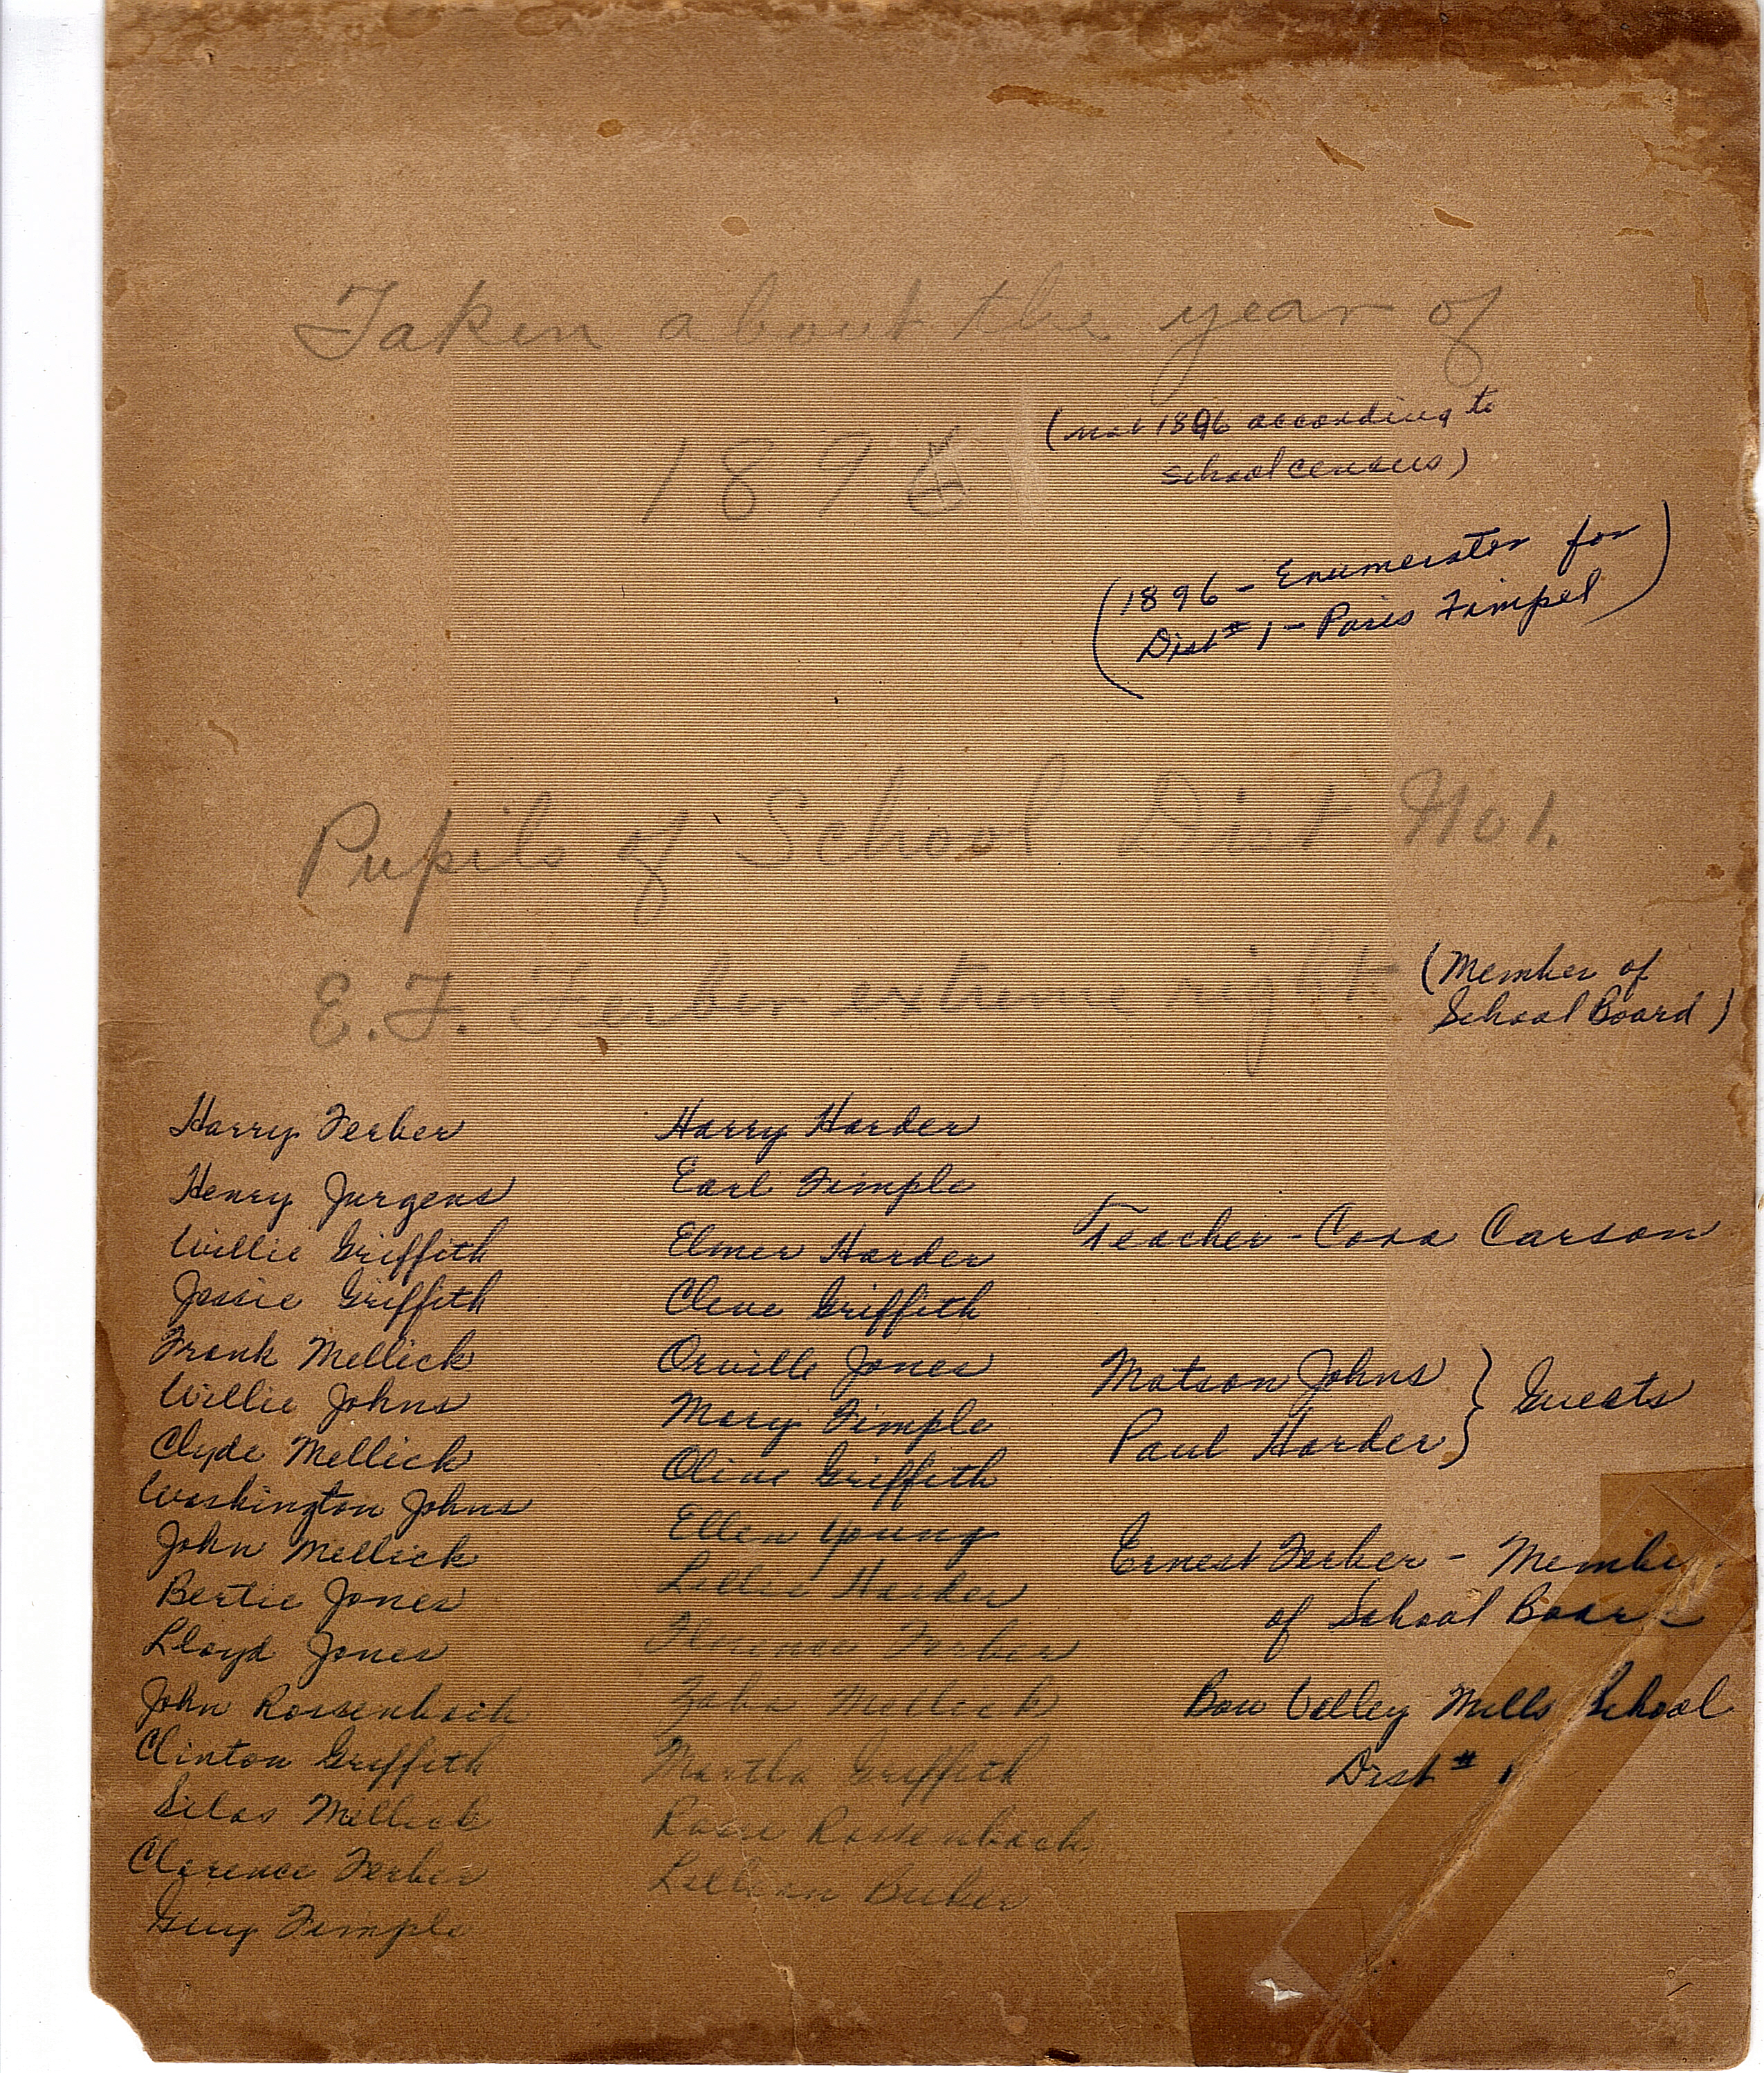 Taken about the year of
189
(not 1896 according to
school census)
(1896 - Enumerator for
Dist # 1 - Paris Fimpel)
Pupils of School Dist No 1.
E. F. Ferber extreme right
(Member of
School Board)
Harry Ferber
Henry Jurgens
Willie Griffith
Jessie Griffith
Frank Mellick
Willie Johns
Clyde Mellick
Washington Johns
John Mellick
Bertie Jones
Lloyd Jones
John Rossenbach
Clinton Griffith
Silas Mellick
Clarence Ferber
Guy Fimple
Harry Harder
Earl Fimple
Elmer Harder
Cleve Griffith
Orville Jones
Mary Fimple
Olive Griffith
Ellen Young
Lillie Harder
Florence Ferber
Mellick
Martha Griffith
Rosie Rossenbach
Lillian
Teacher - Cora Carson
Matson Johns } Guests
Paul Harder
Ernest Ferber - Membe
of School Boar
Bow Valley Mills School
Dist # 1